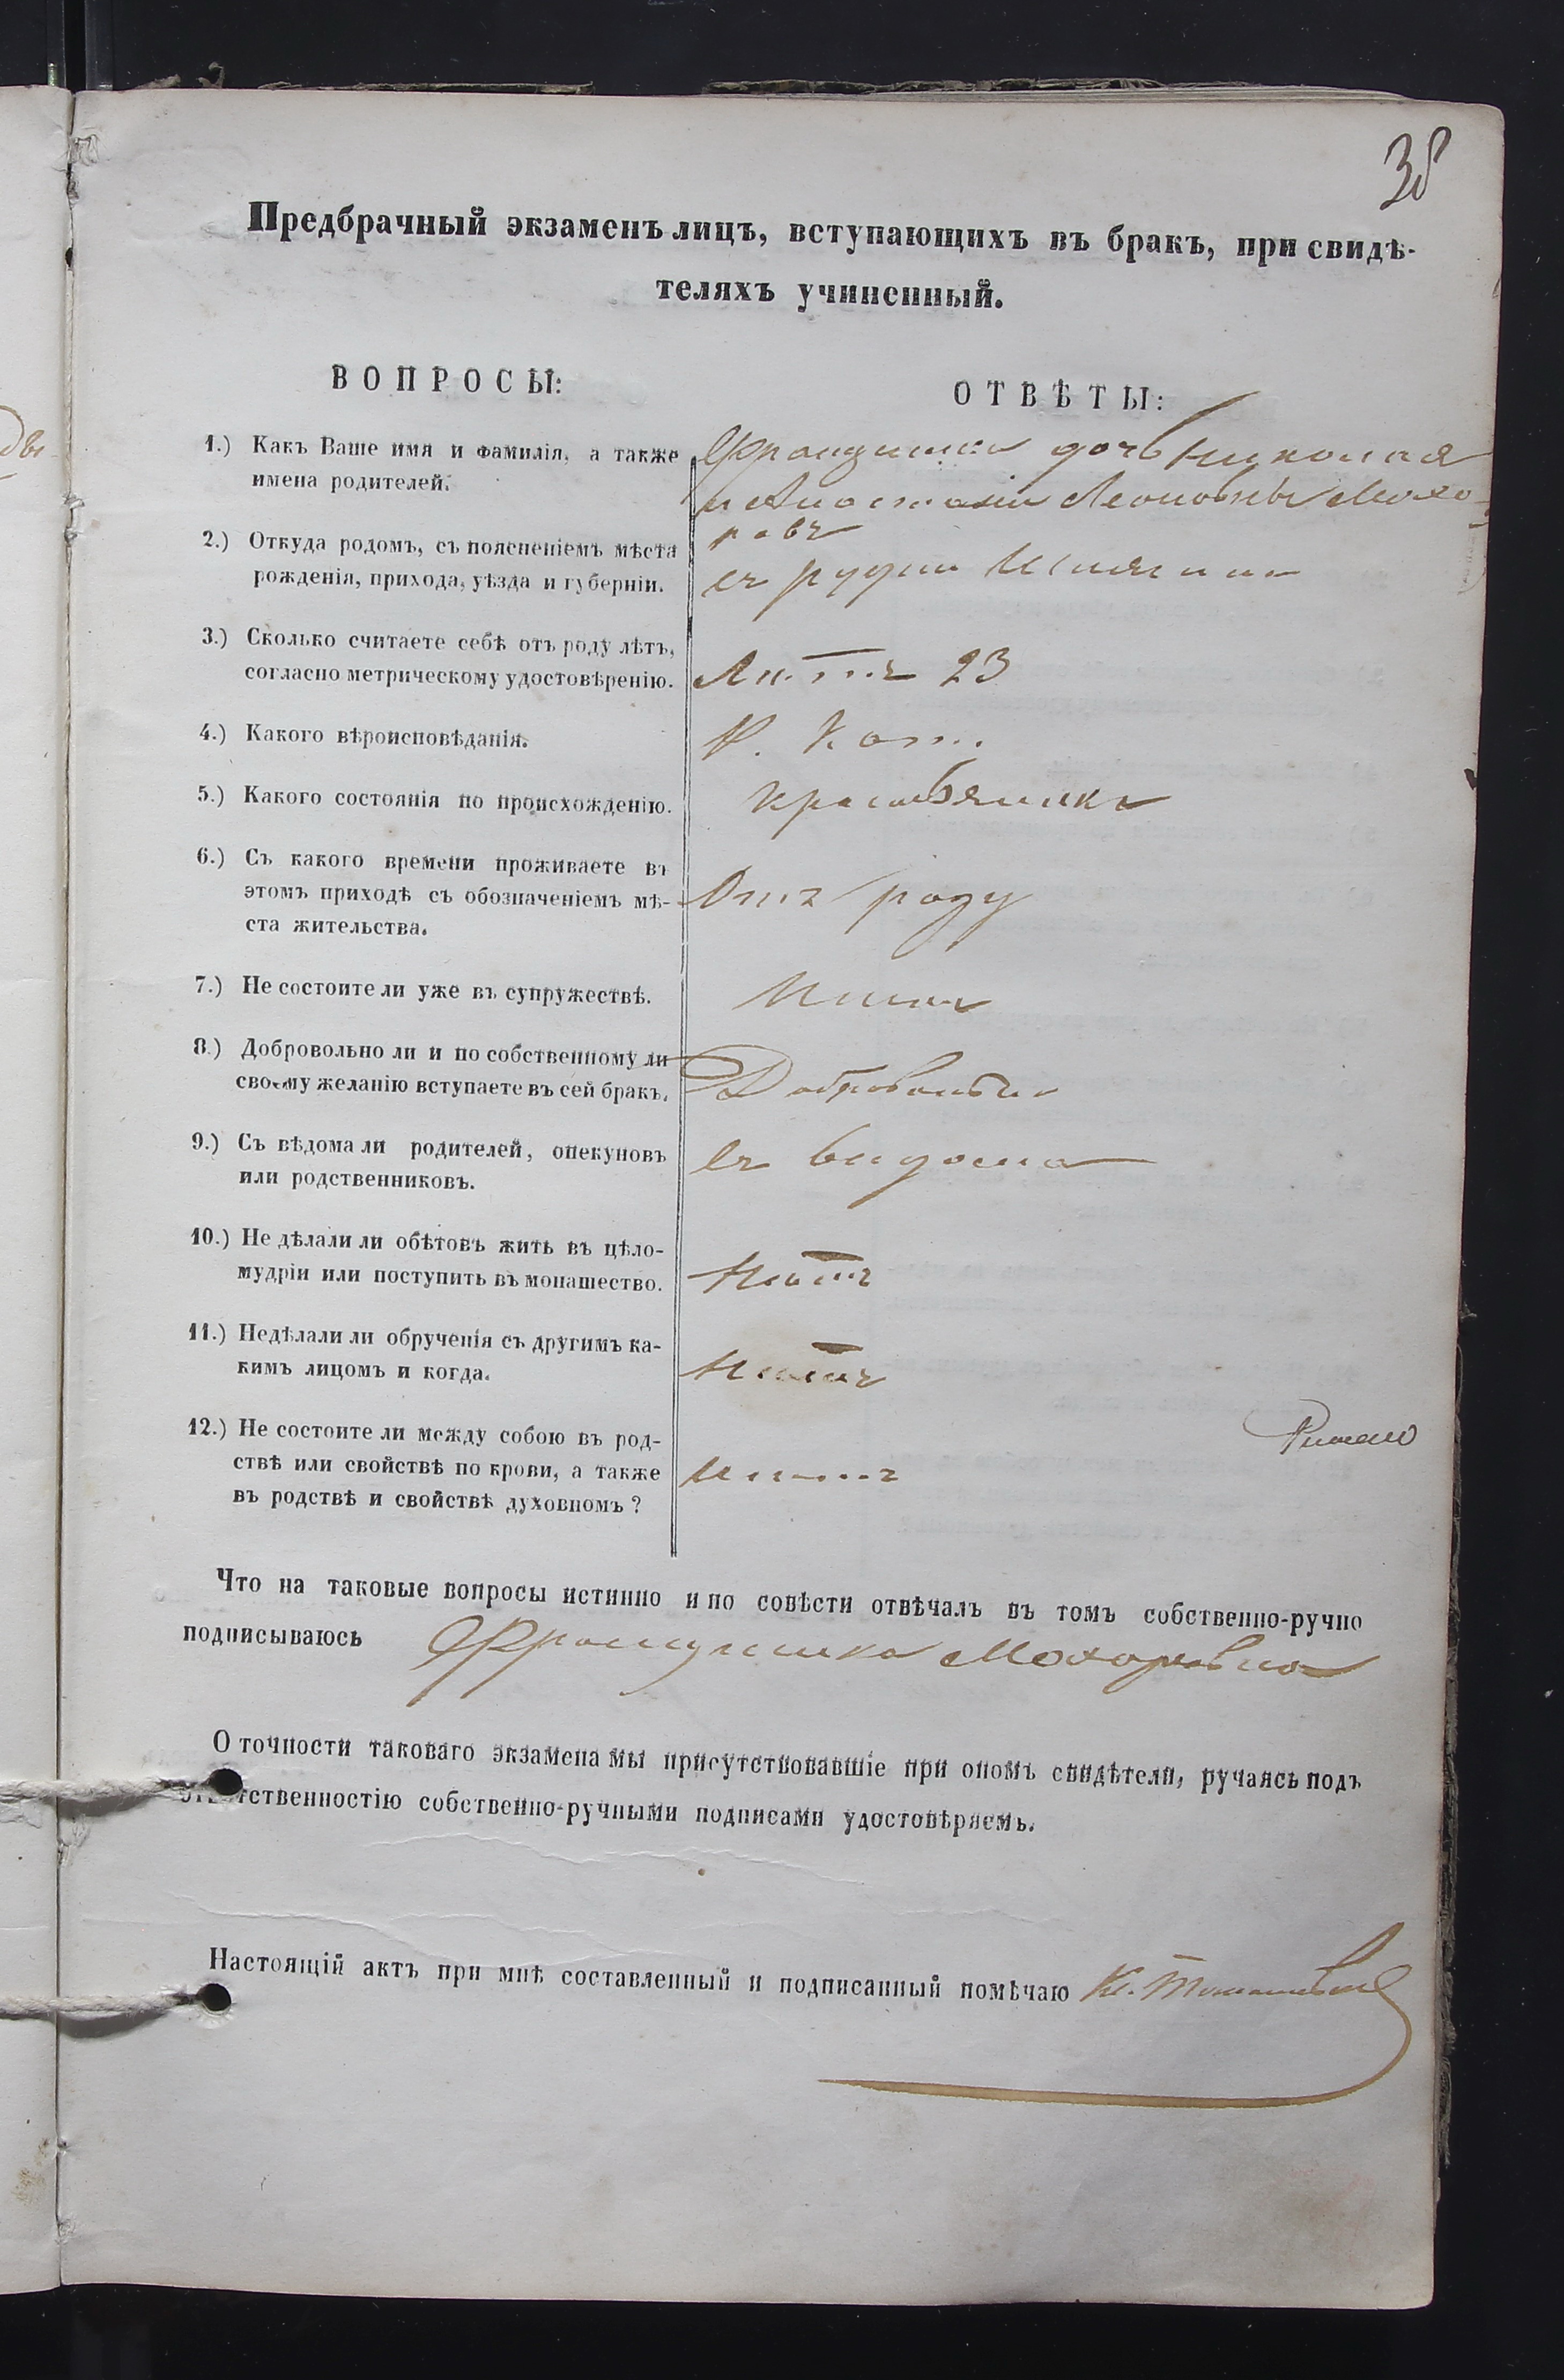 38
Предбрачный экзаменъ лицъ, вступающихъ въ бракъ, при свидѣ-
теляхъ учиненный.
ВОПРОСЫ:
ОТВѢТЫ:
1.) Какъ Ваше имя и фамилія, а также
имена родителей.
Францишка дочь Николая
и Анастазіи Леоновны Мохо-
ровъ
2.) Откуда родомъ, съ поясненіемъ мѣста
рожденія, прихода, уѣзда и губерніи.
съ рудни
3.) Сколько считаете себѣ отъ роду лѣтъ,
согласно метрическому удостовѣренію.
Лѣтъ 23
4.) Какого вѣроисповѣданія.
Р. Кат.
5.) Какого состоянія по происхожденію.
Крестьянка
6.) Съ какого времени проживаете въ
этомъ приходѣ съ обозначеніемъ мѣ-
ста жительства.
Отъ роду
7.) Не состоите ли уже въ супружествѣ.
8.) Добровольно ли и по собственному ли
своему желанію вступаете въ сей бракъ.
Добровольно
9.) Съ вѣдома ли родителей, опекуновъ
или родственниковъ.
Съ видома
10.) Не дѣлали ли обѣтовъ жить въ цѣло-
мудріи или поступить въ монашество.
Нѣтъ
11.) Недѣлали ли обрученія съ другимъ ка-
кимъ лицомъ и когда.
Нѣтъ
12.) Не состоите ли между собою въ род-
ствѣ или свойствѣ по крови, а также
въ родствѣ и свойствѣ духовномъ?
Нѣтъ
Что на таковые вопросы истинно и по совѣсти отвѣчалъ въ томъ собственно-ручно
подписываюсь Францишка Мохоровна
О точности таковаго экзамена мы присутствовавшіе при ономъ свидѣтели, ручаясь подъ
отвѣтственностію собственно-ручными подписами удостовѣряемъ.
Настоящій актъ при мнѣ составленный и подписанный помѣчаю Кс.